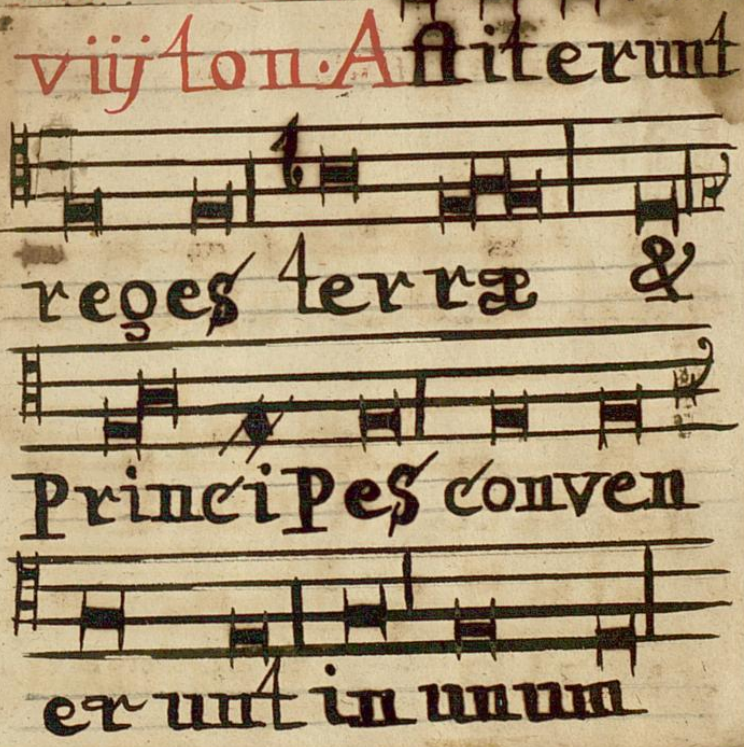 viij ton. Astiterunt
reges terræ &
Principes conven
erunt in unum